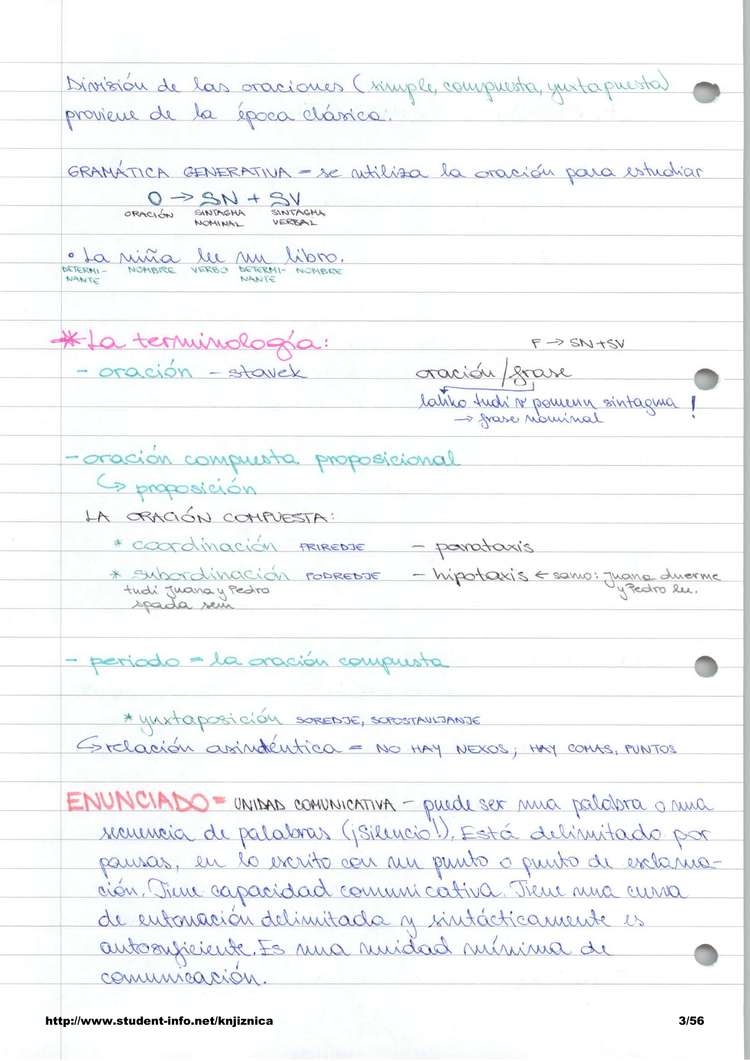 División de las oraciones (simple, compuesta, yuxtapuesta)
proviene de la época clásica.
GRAMÁTICA GENERATIVA - se utiliza la oración para estudiar
O → SN + SV
ORACIÓN SINTAGMA NOMINAL SINTAGMA VERBAL
• La niña lee un libro.
DETERMI-NANTE NOMBRE VERBO DETERMI-NANTE NOMBRE
* La terminología:
F → SN+SV
- oración - stavek
oración/frase
lahko tudi v pomenu sintagma !
→ frase nominal
- oración compuesta proposicional
↳ proposición
LA ORACIÓN COMPUESTA:
* coordinación PRIREDJE - parataxis
* subordinación PODREDJE - hipotaxis ← samo: Juana duerme
y Pedro lee.
tudi Juana y Pedro
spada sem
- periodo = la oración compuesta
* yuxtaposición SOREDJE, SOPOSTAVLJANJE
↳ relación asindéntica = NO HAY NEXOS; HAY COMAS, PUNTOS
ENUNCIADO = UNIDAD COMUNICATIVA - puede ser una palabra o una
secuencia de palabras (¡Silencio!). Está delimitado por
pausas, en lo escrito con un punto o punto de exclama-
ción. Tiene capacidad comunicativa. Tiene una curva
de entonación delimitada y sintácticamente es
autosuficiente. Es una unidad mínima de
comunicación.
http://www.student-info.net/knjiznica
3/56